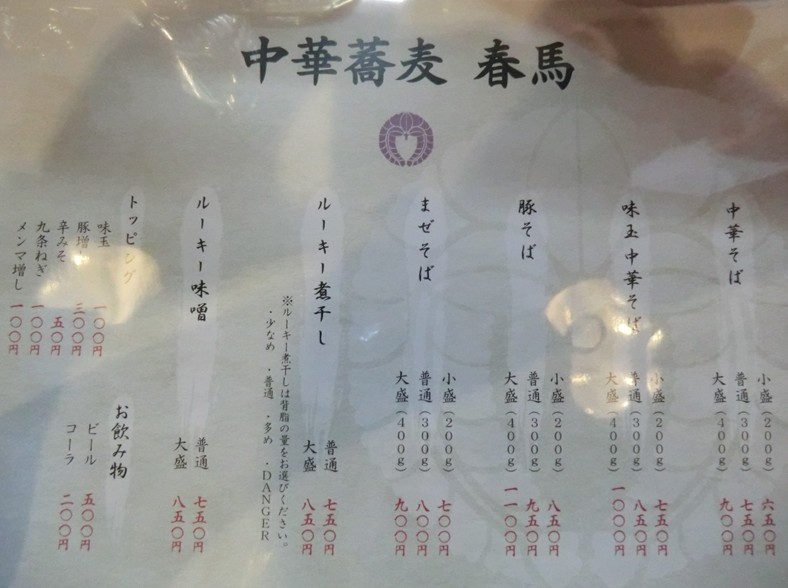 中華蕎麦 春馬
中華そば
小盛(200g) 六五〇円
普通(300g) 七五〇円
大盛(400g) 九〇〇円
味玉中華そば
小盛(200g) 七五〇円
普通(300g) 八五〇円
大盛(400g) 一〇〇〇円
豚そば
小盛(200g) 八五〇円
普通(300g) 九五〇円
大盛(400g) 一一〇〇円
まぜそば
小盛(200g) 七〇〇円
普通(300g) 八〇〇円
大盛(400g) 九〇〇円
ルーキー煮干し
普通 七五〇円
大盛 八五〇円
※ルーキー煮干しは背脂の量をお選びください。
・少なめ ・普通 ・多め ・DANGER
ルーキー味噌
普通 七五〇円
大盛 八五〇円
トッピング
味玉 一〇〇円
豚増し 三〇〇円
辛みそ 五〇円
九条ねぎ 一〇〇円
メンマ増し 一〇〇円
お飲み物
ビール 五〇〇円
コーラ 二〇〇円